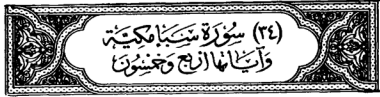 (٣٤) سُورَةُ سَبَإٍ مَكِّيَّة
وَآيَاتُهَا أَرْبَعٌ وَخَمْسُونَ